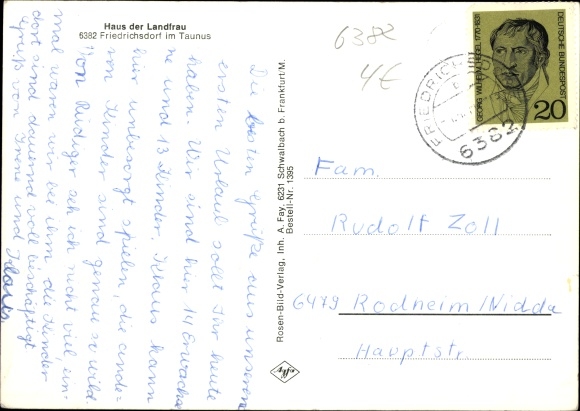 Haus der Landfrau
6382 Friedrichsdorf im Taunus
6382
4€
DEUTSCHE BUNDESPOST
GEORG WILHELM HEGEL 1770-1831
20
FRIEDRICH
6382
Die besten Grüße aus unserem
ersten Urlaub sollt Ihr heute
haben. Wir sind hier 14 Erwachse
ne und 13 Kinder. Klaus kann
hier unbesorgt spielen, die ande=
ren Kinder sind genau so wild.
Von Rüdiger seh ich nicht viel ein-
mal waren wir bei ihm die Kinder
dort sind dauernd voll beschäftigt
Gruß von Irene und Klaus.
Rosen-Bild-Verlag, Inh. A. Fay, 6231 Schwalbach b. Frankfurt/M.
Bestell-Nr. 1395
Agfa
Fam.
Rudolf Zoll
6479 Rodheim/Nidda
Hauptstr.